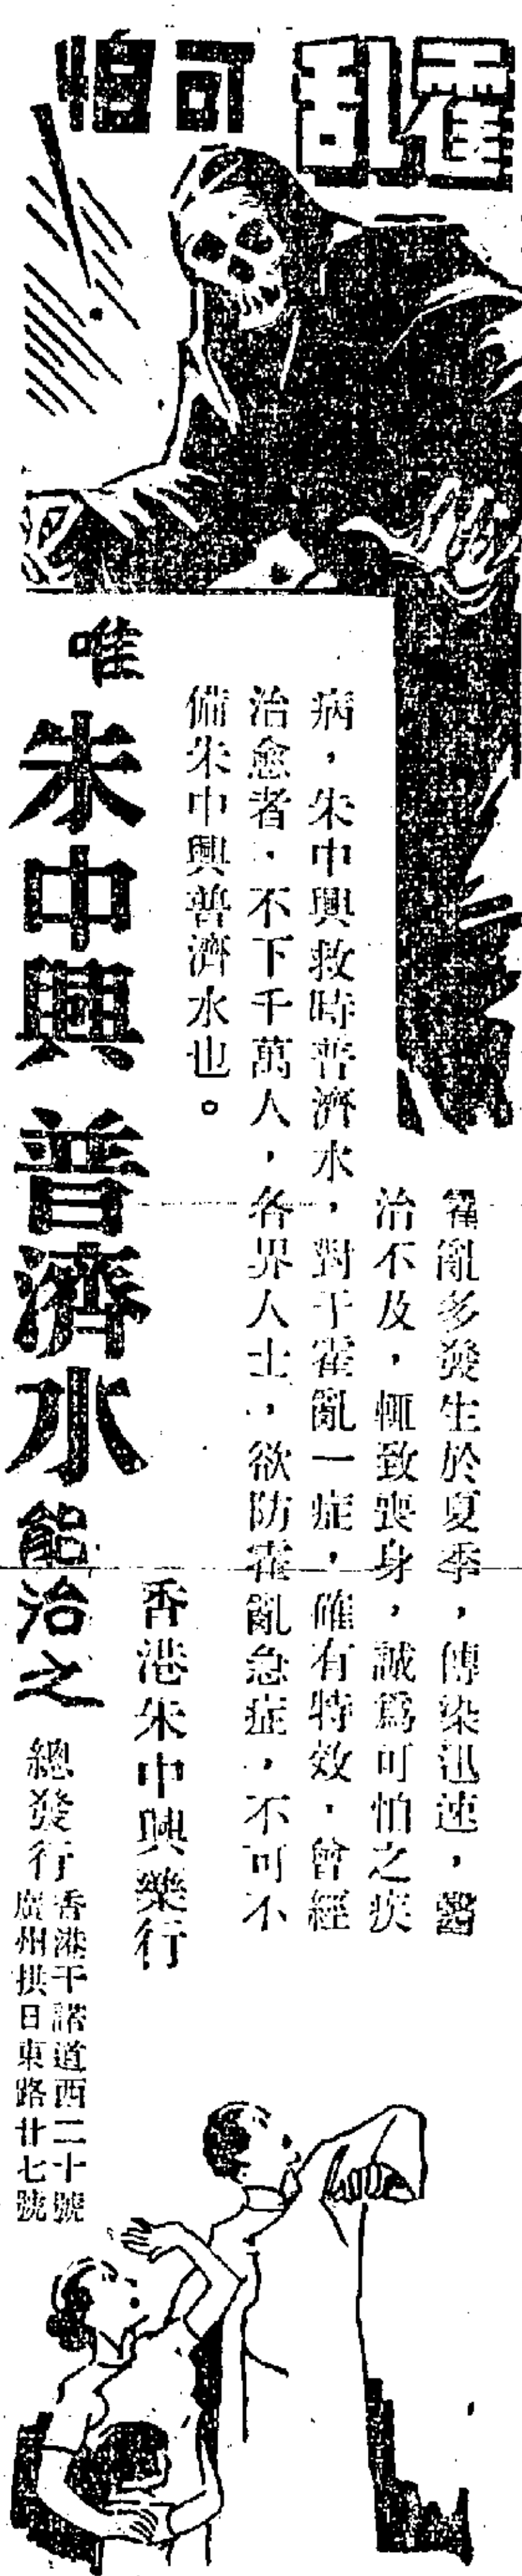 霍乱可怕
霍亂多發生於夏季，傳染迅速，醫
治不及，輒致喪身，誠爲可怕之疾
病，朱中興救時普濟水，對于霍亂一症，確有特效，曾經
治愈者，不下千萬人，各界人士，欲防霍亂急症，不可不
備朱中興普濟水也。
香港朱中興藥行
唯朱中興普濟水能治之
總發行
香港干諾道西二十號
廣州拱日東路廿七號